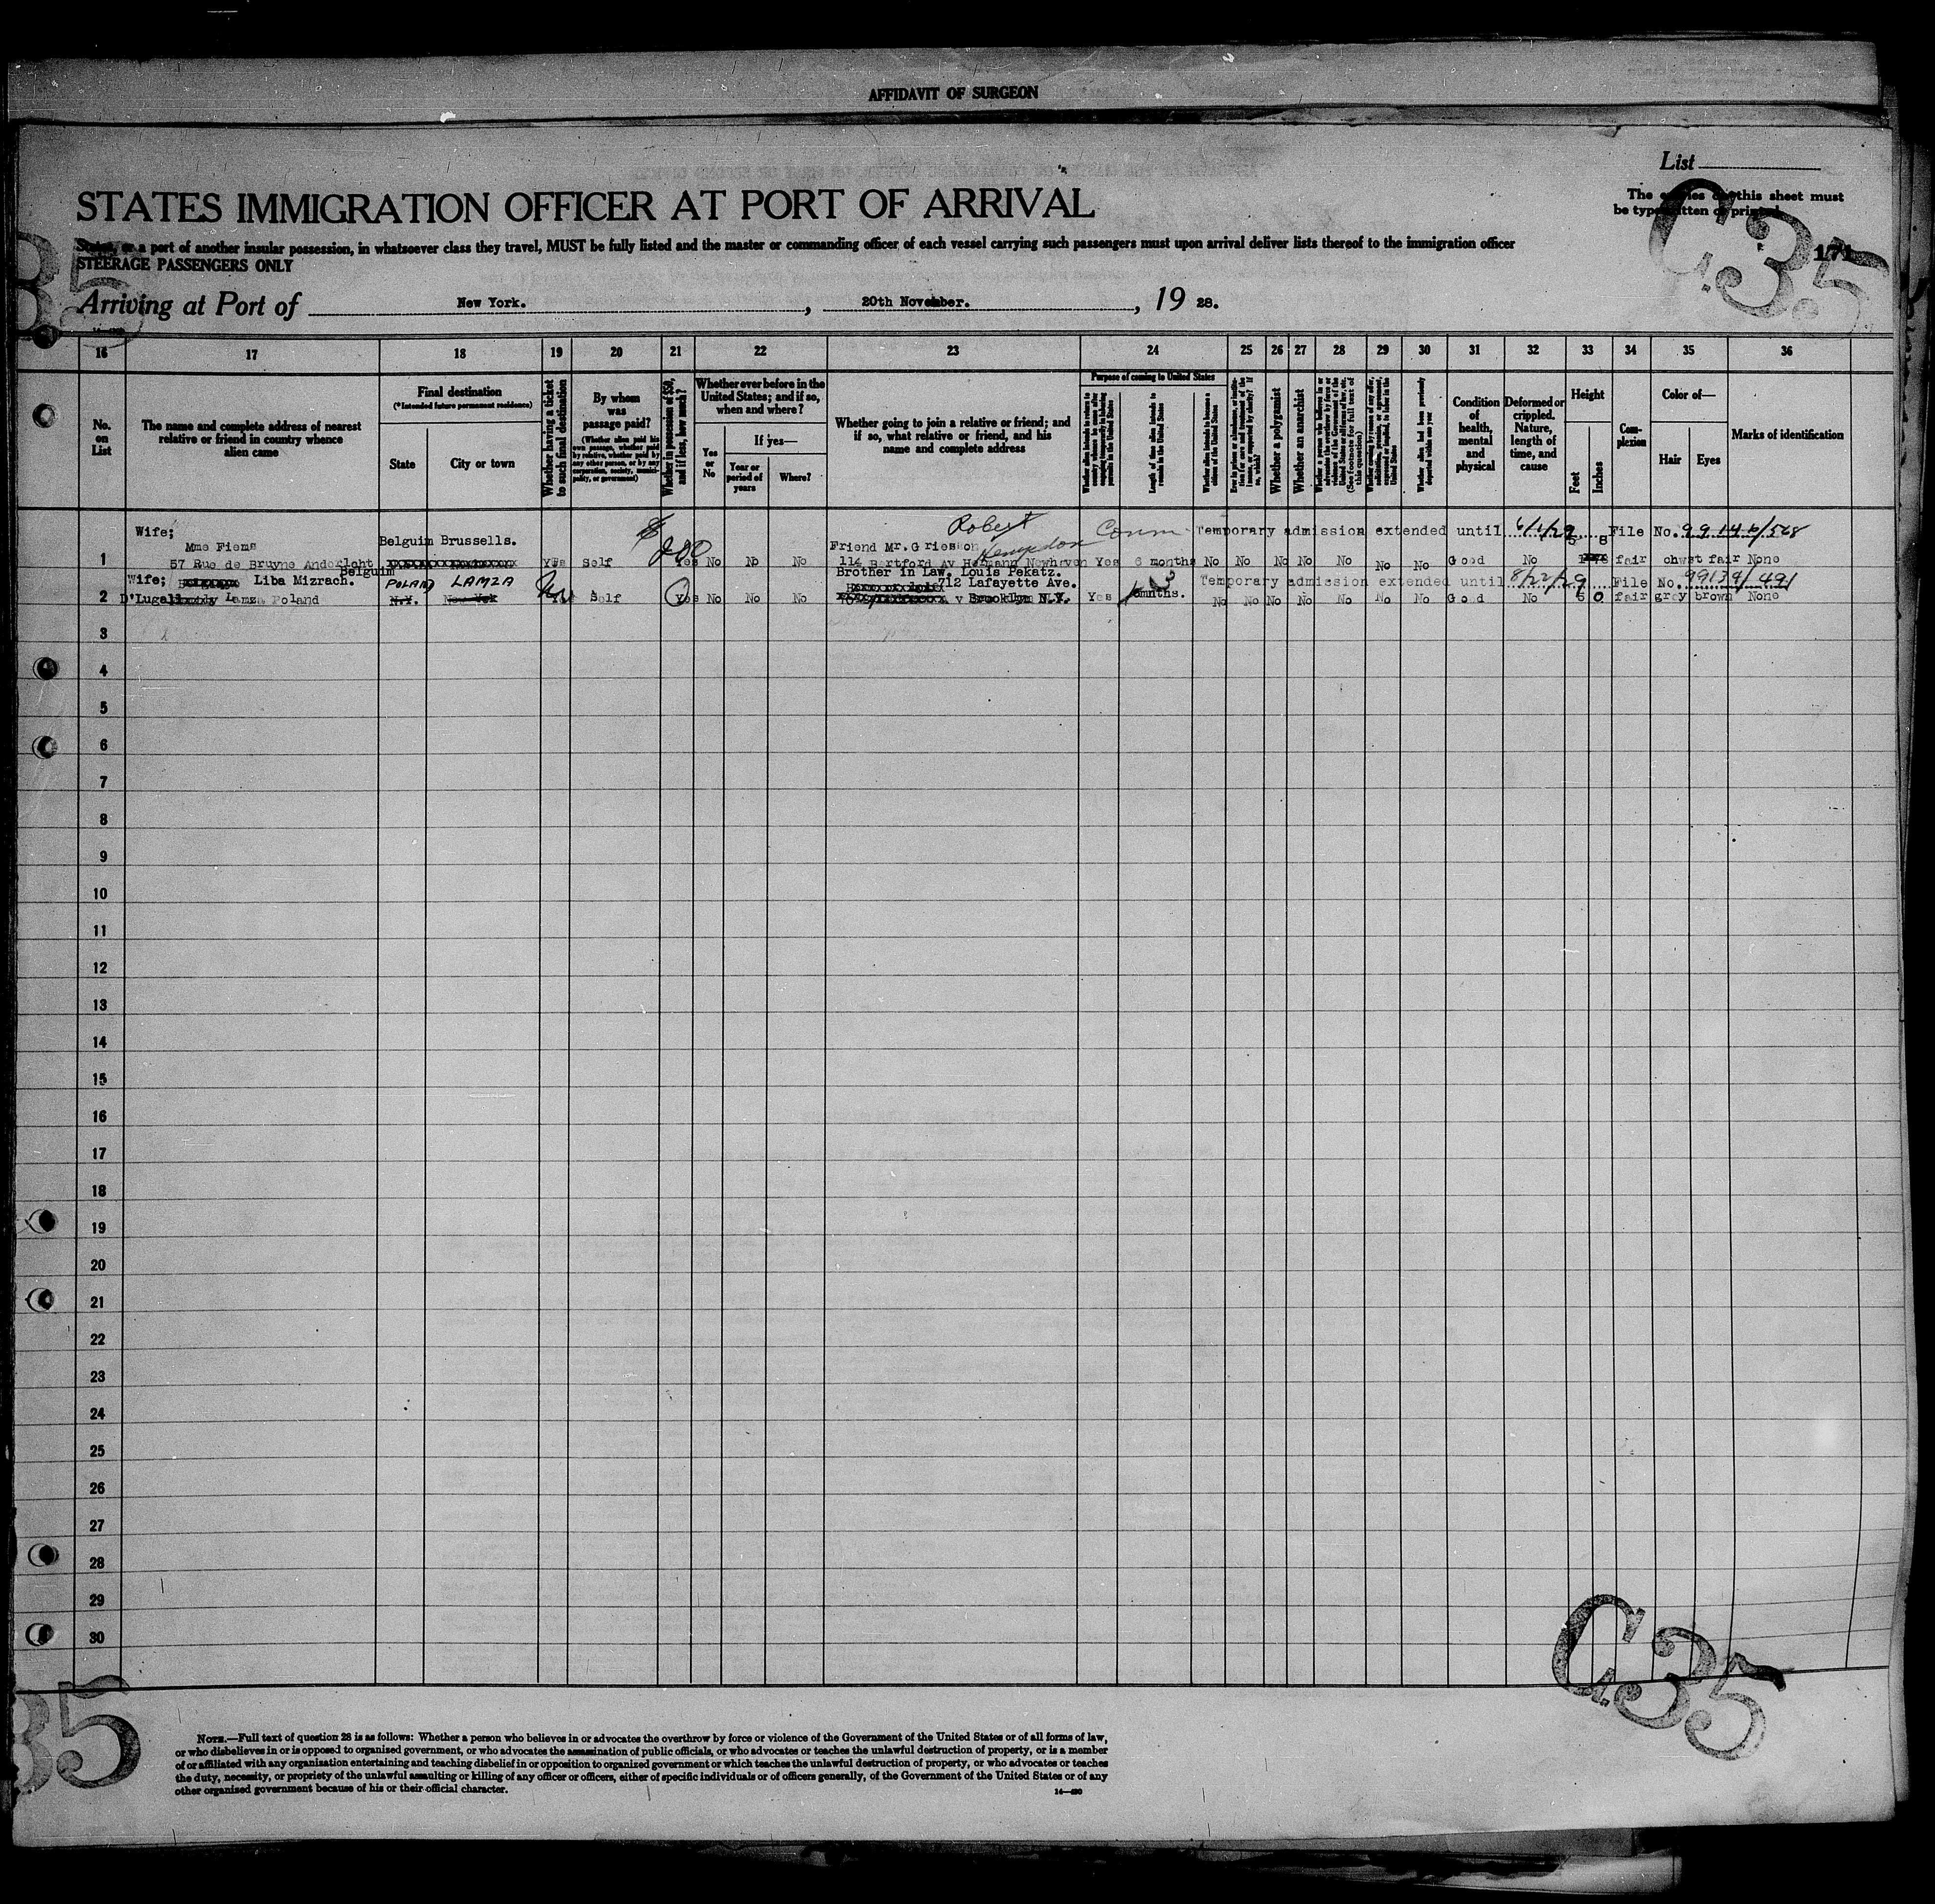 AFFIDAVIT OF SURGEON
List
STATES IMMIGRATION OFFICER AT PORT OF ARRIVAL
The entries on this sheet must
be typewritten or printed
States, or a port of another insular possession, in whatsoever class they travel, MUST be fully listed and the master or commanding officer of each vessel carrying such passengers must upon arrival deliver lists thereof to the immigration officer
STEERAGE PASSENGERS ONLY
C35
171
35
Arriving at Port of New York. , 20th November. , 19 28.
16 17 18 19 20 21 22 23 24 25 26 27 28 29 30 31 32 33 34 35 36
No. on List
The name and complete address of nearest relative or friend in country whence alien came
Final destination
(*Intended future permanent residence)
State
City or town
Whether having a ticket to such final destination
By whom was passage paid?
(Whether alien paid his own passage, whether paid by relative, whether paid by any other person, or by any corporation, society, municipality, or government)
Whether in possession of $50, and if less, how much?
Whether ever before in the United States; and if so, when and where?
Yes or No
If yes—
Year or period of years
Where?
Whether going to join a relative or friend; and if so, what relative or friend, and his name and complete address
Purpose of coming to United States
Whether alien intends to return to country whence he came after engaging temporarily in laboring pursuits in the United States
Length of time alien intends to remain in the United States
Whether alien intends to become a citizen of the United States
Whether a polygamist
Whether an anarchist
Whether alien had been previously deported within one year
Condition of health, mental and physical
Deformed or crippled. Nature, length of time, and cause
Height
Feet
Inches
Complexion
Color of—
Hair
Eyes
Marks of identification
Wife; Robert Conn Temporary admission extended until 6/1/29 File No. 99146/568
Mme Fiems Belguim Brussells. $ 200 Friend Mr. Grieson Hempdon 5 8
1 57 Rue de Bruyne Anderlcht Yes Self Yes No No No 114 Bartford Av Hermann Newhaven Yes 6 months No No No No No No No Good No fair chwst fair None
Belguim Brother in Law. Louis Pekatz.
Wife; Liba Mizrach. POLAND LAMZA No 712 Lafayette Ave. 3 Temporary admission extended until 8/22/29 File No. 99139/491
2 D'Luga Lamza Poland N.Y. New York Self Yes No No No Brooklyn N.Y. Yes 6mnths. No No No No No No No Good No 5 0 fair grey brown None
3
4
5
6
7
8
9
10
11
12
13
14
15
16
17
18
19
20
21
22
23
24
25
26
27
28
29
30
C35
35
NOTE.—Full text of question 28 is as follows: Whether a person who believes in or advocates the overthrow by force or violence of the Government of the United States or of all forms of law,
or who disbelieves in or is opposed to organised government, or who advocates the assassination of public officials, or who advocates or teaches the unlawful destruction of property, or is a member
of or affiliated with any organisation entertaining and teaching disbelief in or opposition to organized government or which teaches the unlawful destruction of property, or who advocates or teaches
the duty, necessity, or propriety of the unlawful assaulting or killing of any officer or officers, either of specific individuals or of officers generally, of the Government of the United States or of any
other organised government because of his or their official character.
14—430